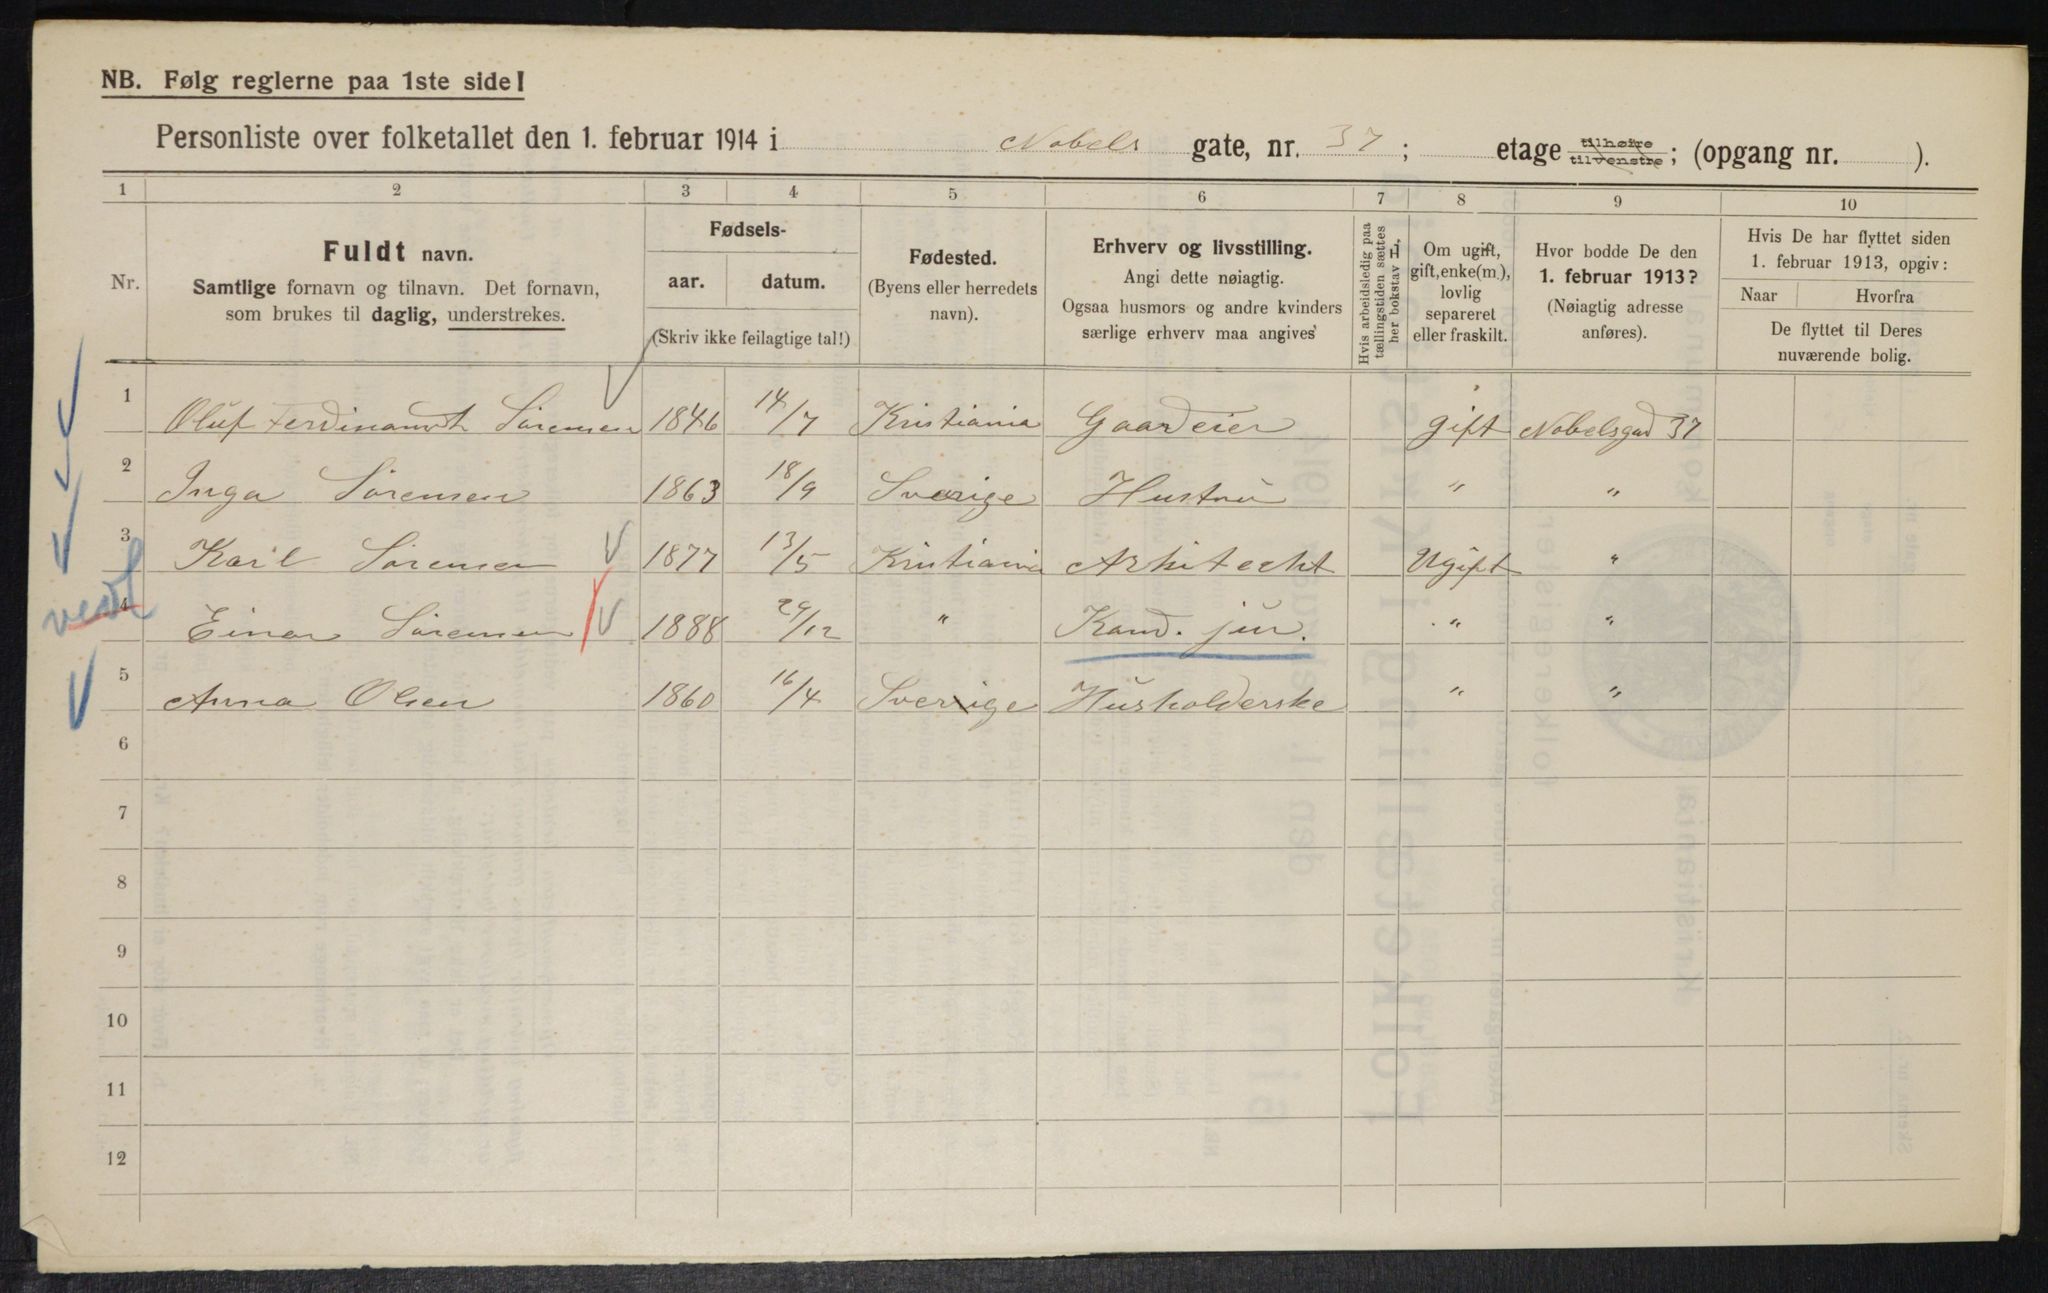 NB. Følg reglerne paa 1ste side!
Personliste over folketallet den 1. februar 1914 i Nobels gate, nr. 37 ; etage tilhøire tilvenstre ; (opgang nr. ).
1 2 3 4 5 6 7 8 9 10
Nr.
Fuldt navn.
Samtlige fornavn og tilnavn. Det fornavn,
som brukes til daglig, understrekes.
Fødsels-
aar. datum.
(Skriv ikke feilagtige tal!)
Fødested.
(Byens eller herredets
navn).
Erhverv og livsstilling.
Angi dette nøiagtig.
Ogsaa husmors og andre kvinders
særlige erhverv maa angives
Hvis arbeidsledig paa
tællingstiden sættes
her bokstav L.
Om ugift,
gift, enke(m.),
lovlig
separeret
eller fraskilt.
Hvor bodde De den
1. februar 1913?
(Nøiagtig adresse
anføres).
Hvis De har flyttet siden
1. februar 1913, opgiv:
Naar Hvorfra
De flyttet til Deres
nuværende bolig.
1 Oluf Ferdinandt Sörensen 1846 14/7 Kristiania Gaardeier gift Nobelsgad 37
2 Inga Sörensen 1863 18/9 Sverige Hustru " "
3 Karl Sörensen 1877 13/5 Kristiania Arkitecht Ugift "
4 Einar Sörensen 1888 29/12 " Kand. jur. " "
5 Anna Olsen 1860 16/4 Sverige Husholderske " "
6
7
8
9
10
11
12